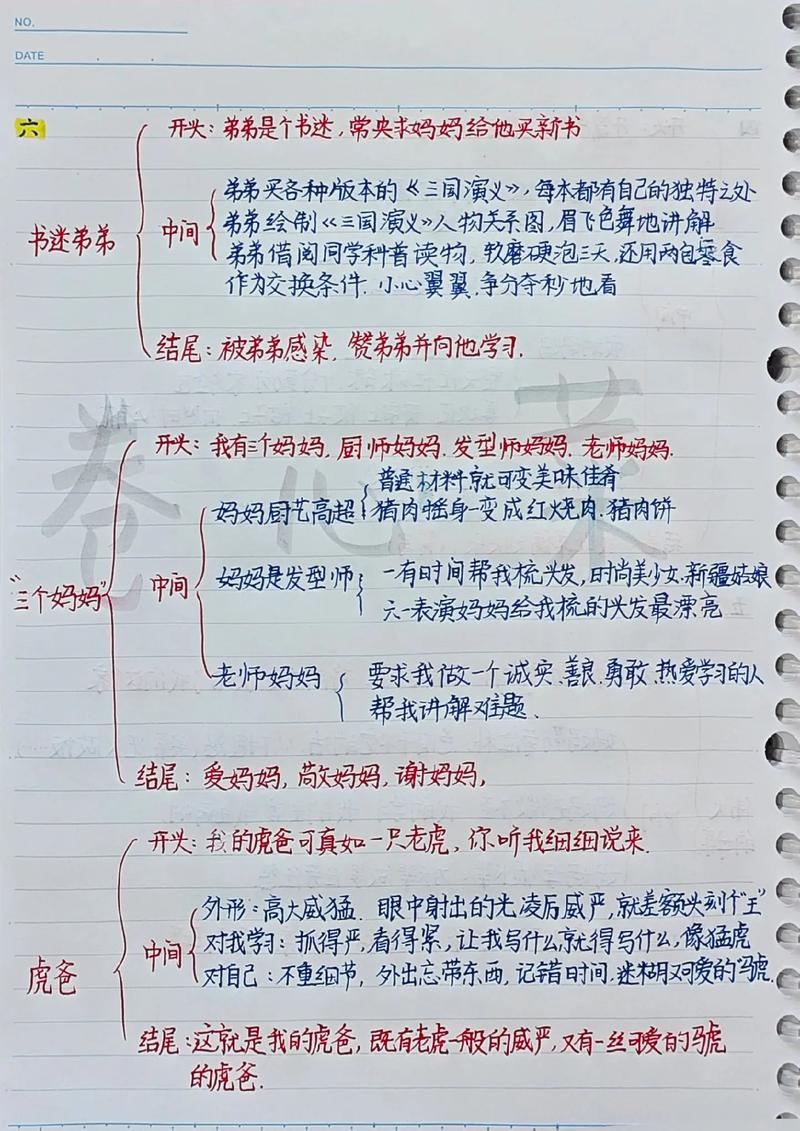 NO.
DATE
六
书迷弟弟
开头：弟弟是个书迷，常央求妈妈给他买新书
中间
弟弟买各种版本的《三国演义》，每本都有自己的独特之处
弟弟绘制《三国演义》人物关系图，眉飞色舞地讲解
弟弟借阅同学科普读物，软磨硬泡三天，还用两包零食
作为交换条件.小心翼翼，争分夺秒地看
结尾：被弟弟感染，赞弟弟并向他学习.
卷心菜
"三个妈妈"
开头：我有三个妈妈，厨师妈妈.发型师妈妈.老师妈妈.
中间
妈妈厨艺高超
普通材料就可变美味佳肴
猪肉摇身一变成红烧肉.猪肉饼
妈妈是发型师
一有时间帮我梳头发，时尚美少女.新疆姑娘
六一表演妈妈给我梳的头发最漂亮
老师妈妈
要求我做一个诚实.善良.勇敢.热爱学习的人
帮我讲解难题.
结尾：爱妈妈，敬妈妈，谢妈妈，
虎爸
开头：我的虎爸可真如一只老虎，你听我细细说来.
中间
外形：高大威猛.眼中射出的光凌厉威严，就差额头刻个"王"
对我学习：抓得严，看得紧，让我写什么就得写什么，像猛虎
对自己：不重细节，外出忘带东西，记错时间，迷糊又可爱的"马虎.
结尾：这就是我的虎爸，既有老虎一般的威严，又有一丝可爱的马虎
的虎爸.